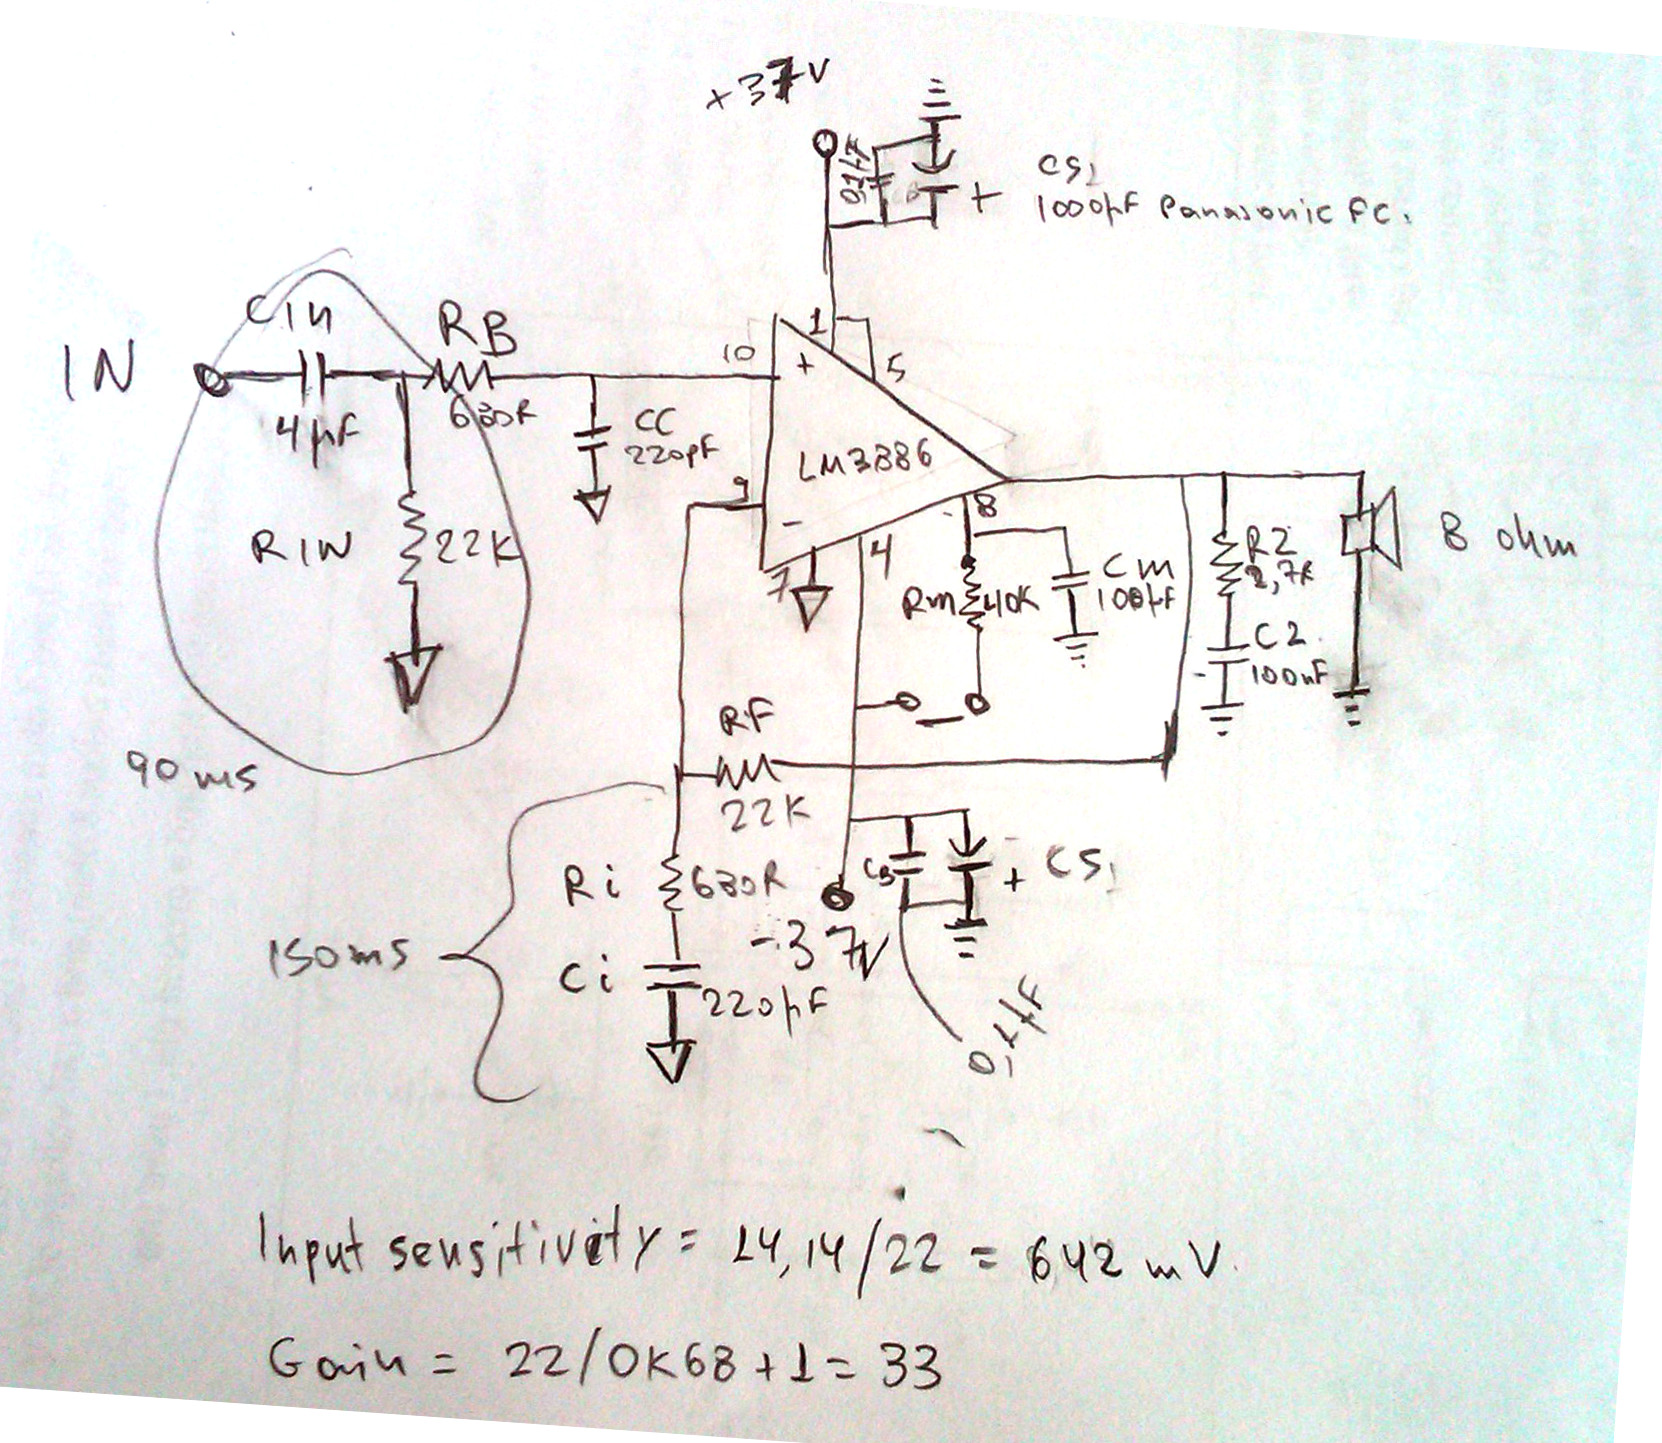 +37V
0,1µF
CS1
1000µF Panasonic FC.
+
IN
Cin
4µF
RB
680R
CC
220pF
RIN
22K
90ms
10
+
1
5
LM3886
9
-
7
4
8
Rm
40K
Cm
100µF
RZ
2,7R
CZ
100nF
8 ohm
RF
22K
Ri
680R
Ci
220µF
150ms
-37V
+
CS1
0,1µF
Input sensitivity = 14,14/22 = 642 mV.
Gain = 22/0K68 + 1 = 33